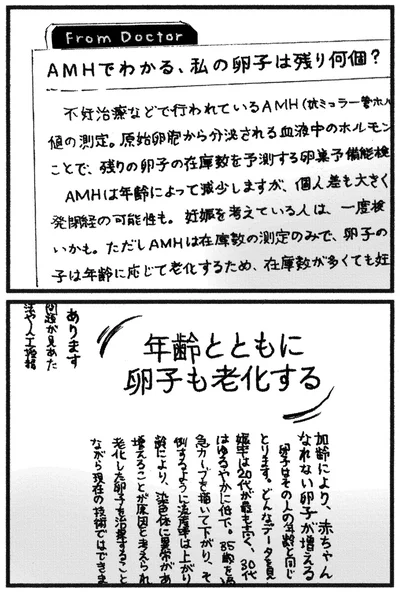 From Doctor
AMHでわかる、私の卵子は残り何個?
不妊治療などで行われているAMH(抗ミュラー管ホル
値の測定。原始卵胞から分泌される血液中のホルモン
ことで、残りの卵子の在庫数を予測する卵巣予備能検
AMHは年齢によって減少しますが、個人差も大きく
発閉経の可能性も。妊娠を考えている人は、一度検
いかも。ただしAMHは在庫数の測定のみで、卵子の
子は年齢に応じて老化するため、在庫数が多くても妊
年齢とともに
卵子も老化する
加齢により、赤ちゃん
なれない卵子が増える
卵子はその人の年齢と同じ
とります。どんなデータを見
娠率は20代が最も高く、30代
はゆるやかに低下。35歳を
急カーブを描いて下がり、そ
例するように流産率は上がり
齢により、染色体に異常があ
増えることが原因と考えられ
老化した卵子を治療すること
ながら現在の技術ではできま
あります
問題が見
法や人工授精